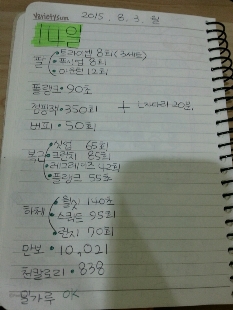 2015. 8. 3. 월
14일
팔
푸쉬업 8회
12회
플랭크 • 90초
점핑잭 • 350회 + 20분
버피 • 50회
복근
싯업 65회
크런치 85회
레그레이즈 42회
플랭크 55초
하체
월싯 140초
스쿼트 95회
런지 70회
만보 • 10,021
천칼로리 • 838
밀가루 OK